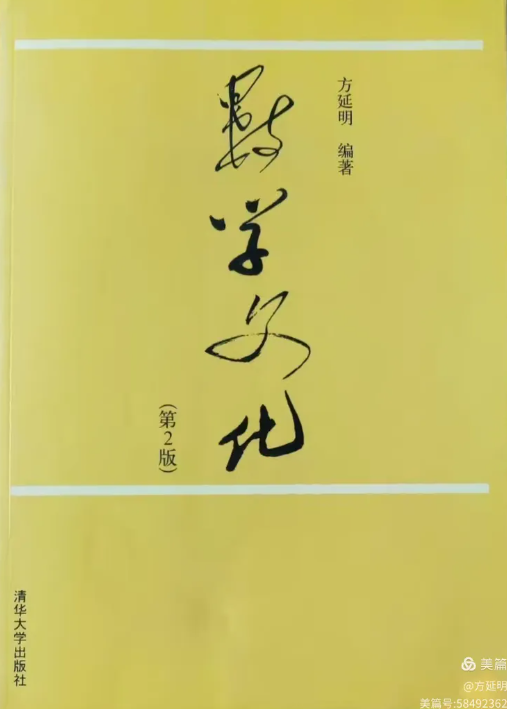 方延明 编著
数学文化
(第2版)
清华大学出版社
美篇
@方延明
美篇号:58492362